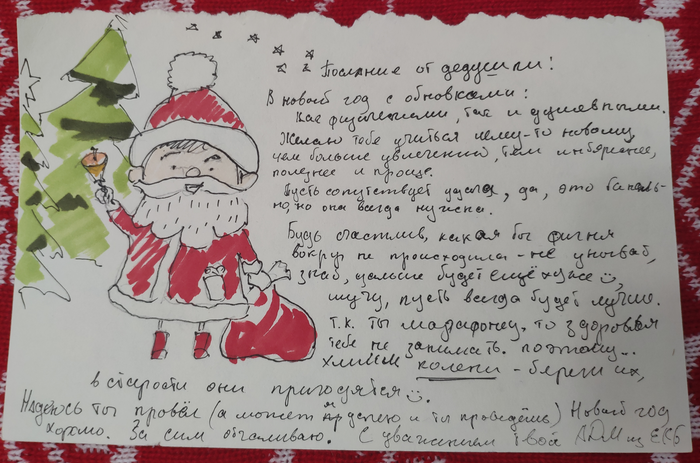 Послание от дедушки!
В новый год с обновками:
Как физическими, так и душевными.
Желаю тебе учиться чему-то новому,
чем больше увлечений, тем интереснее,
полезнее и проще.
Пусть сопутствует удача, да, это баналь-
но, но она всегда нужна.
Будь счастлив, какая бы фигня
вокруг не происходила - не унывай,
знай, дальше будет ещё хуже
шучу, пусть всегда будет лучше.
Т.к. ты марафонец, то здоровья
тебе не занимать. поэтому...
колени - береги их,
в старости они пригодятся
Надеюсь ты провёл (а может я успею и ты проведёшь) Новый год
хорошо. За сим откланиваю. С уважением твой АДМ из ЕКБ